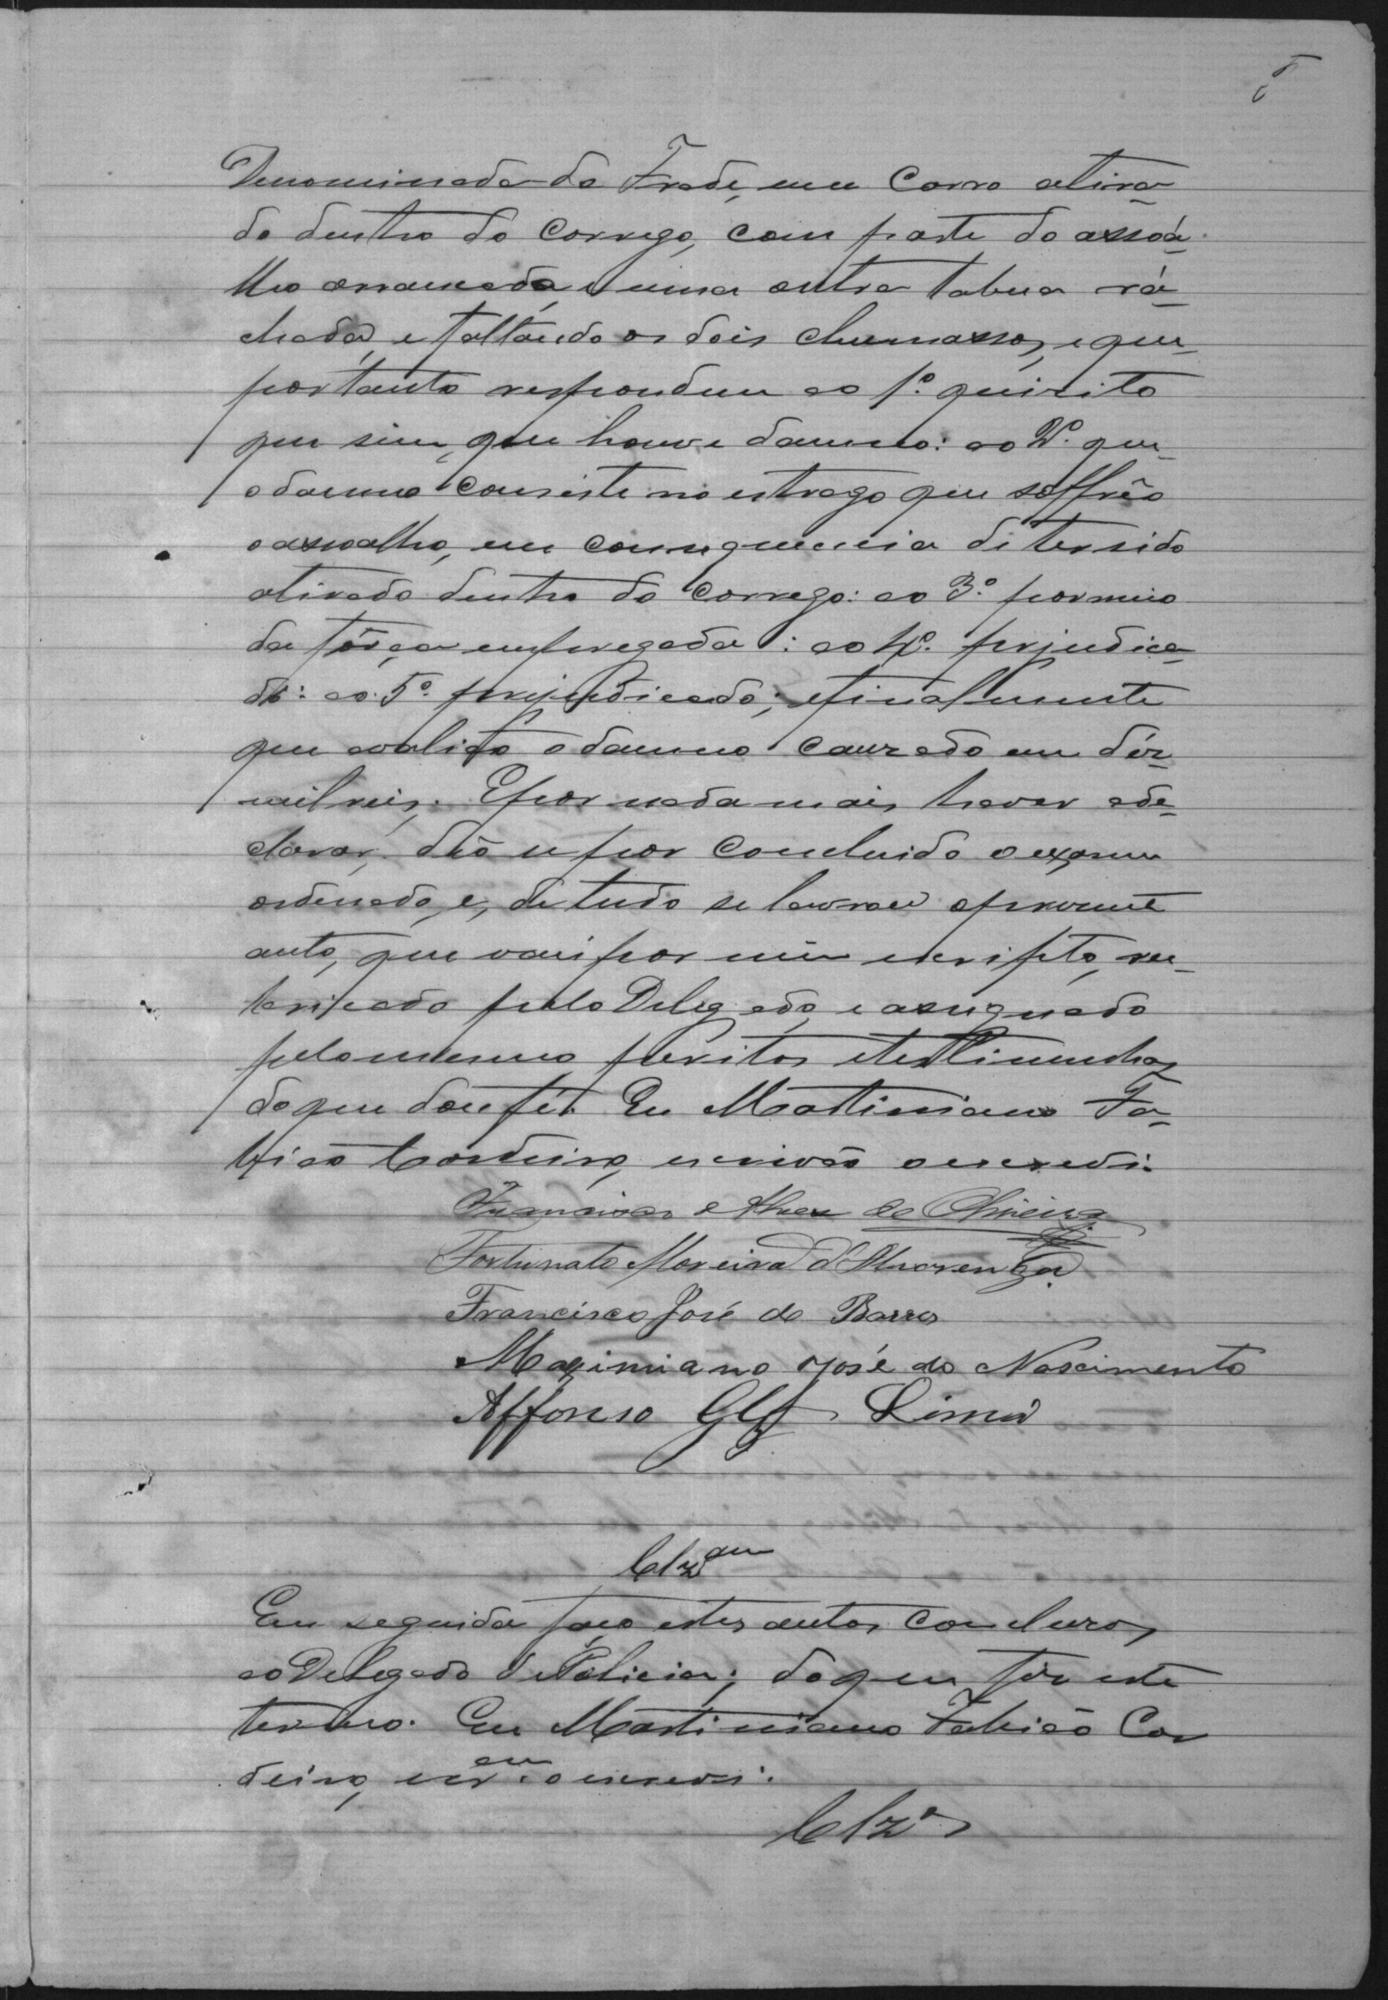 Denominada do Frade, um carro atira-
do dentro do corrego, com parte do assoá-
lho arrancada, e uma outra tabua rá-
chada, e faltando os dois chumassos, e que
portanto respondem ao 1º. quisito
que sim, que houve damno: ao 2º. que
o damno consiste no estrago que soffrêo
o assoalho, em consequencia de ter sido
atirado dentro do corrego: ao 3º. por meio
da força empregada: ao 4º. prejudica-
do: ao 5º. prejudicado; e finalmente
que avalião o damno causado em déz
mil reis. E por nada mais haver a de-
clarar, dêo se por concluido o exame
ordenado, e, de tudo se lavrou o presente
auto, que vai por mim escripto, ru-
bricado pelo Delegado, e assignado
pelo mesmo peritos e testimunhas
do que dou fé. Eu Martiniano Fa-
bião Cordeiro, escrivão o escrevi.
Francisco Alves de Oliveira
Fortunato Moreira d'Alvarenga
Francisco José de Barros
Maximiano José do Nascimento
Affonso Lima
Clzam
Em seguida faço estes autos concluzos
ao Delegado de Policia; do que fiz este
termo. Eu Martiniano Fabião Cor
deiro, escram. o escrevi.
Clzos